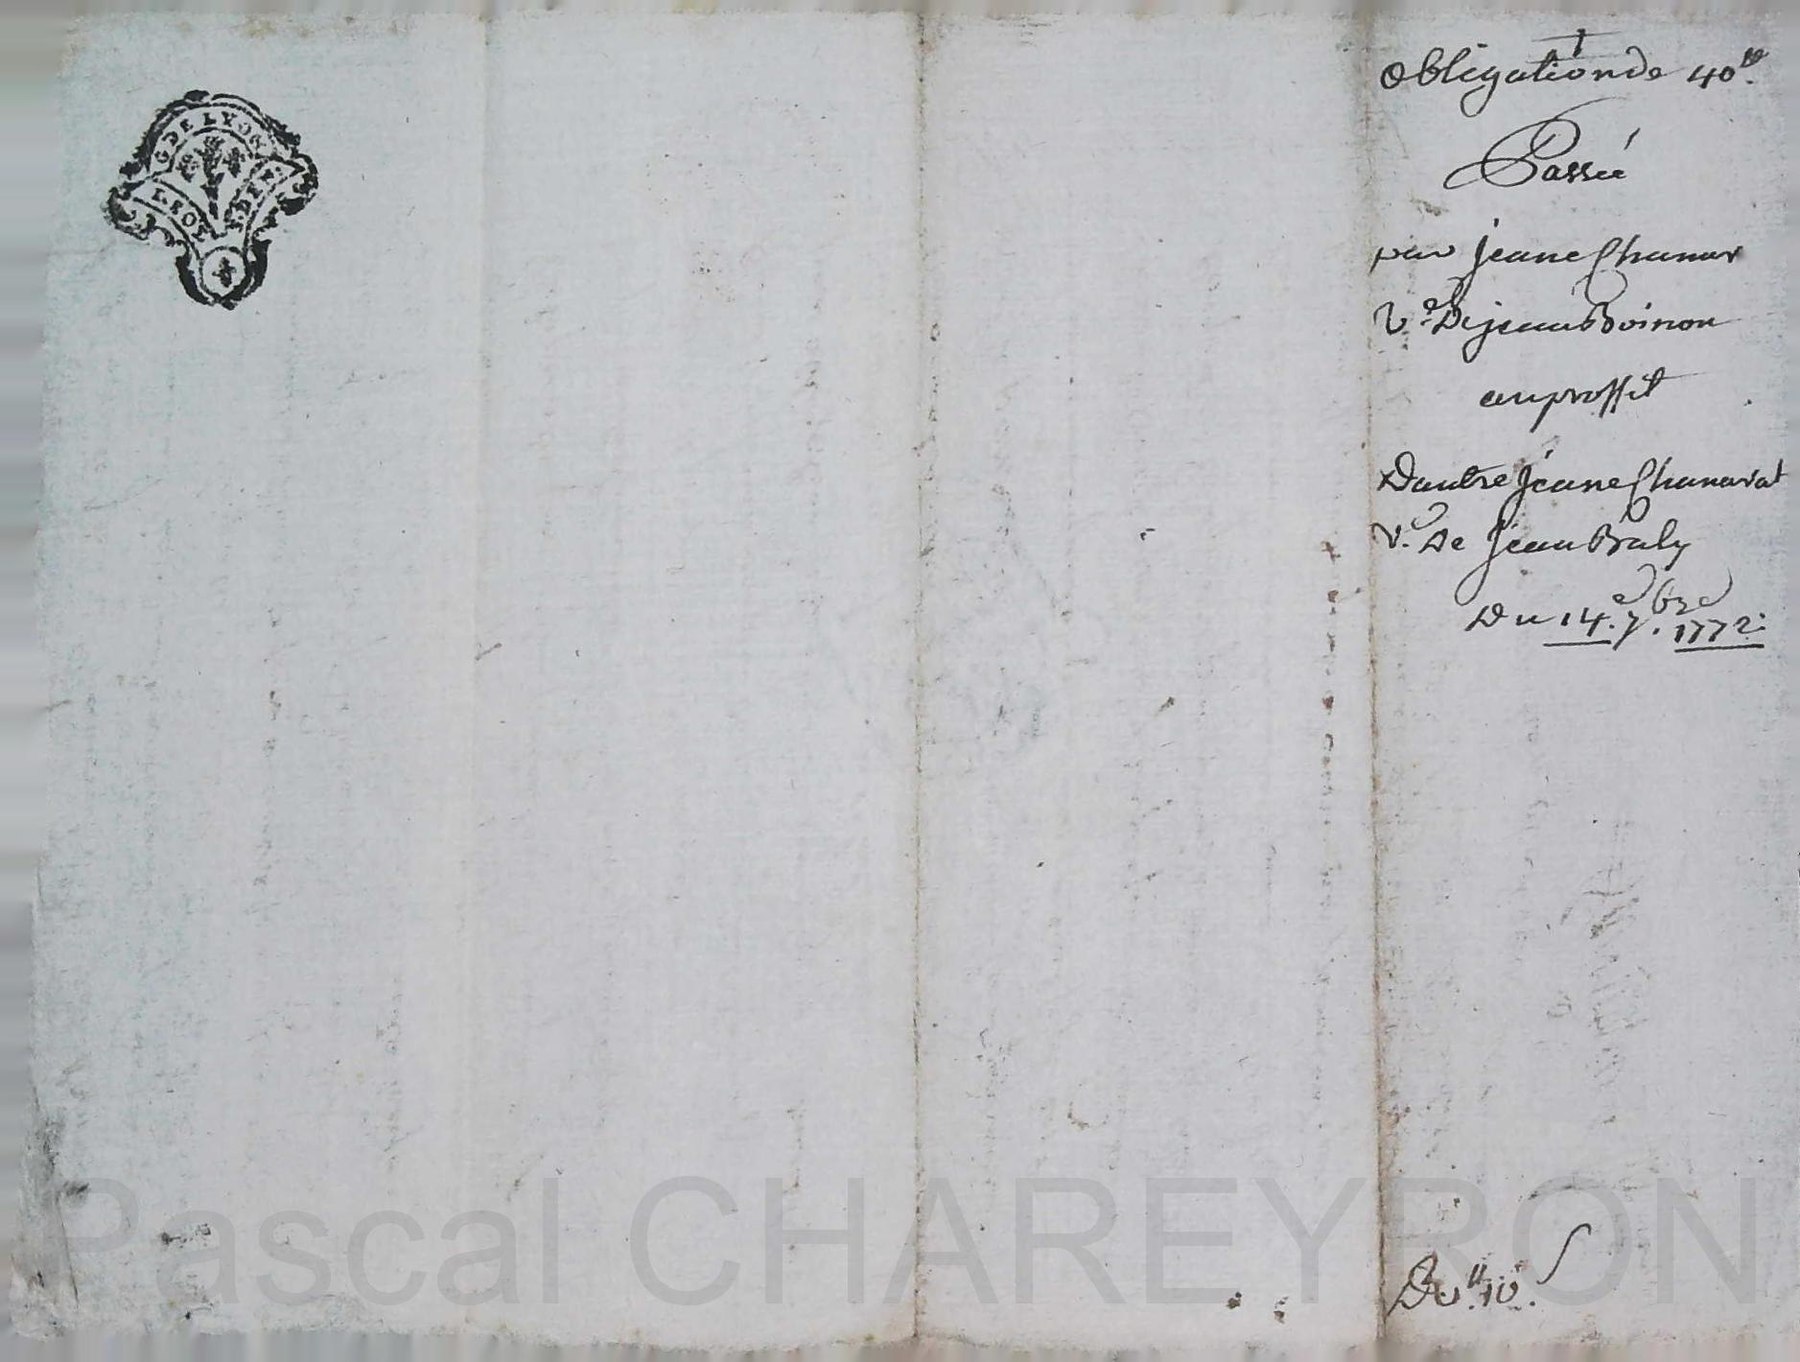 G. DE LYON
obligation de 40 tt.
Passée
par jeane Chanav
Ve. De jean Boinon
au proffit
Dautre jeane Chanavat
Ve. De jean Braly
Du 14.e 7.bre 1772.
Pascal CHAREYRON